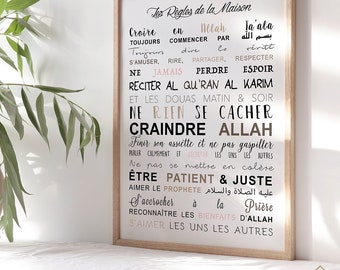 Les Règles de la Maison
Croire en Allah Ta'ala
TOUJOURS COMMENCER PAR بسم الله
Toujours dire la vérité
S'AMUSER, RIRE, PARTAGER, RESPECTER
NE JAMAIS PERDRE ESPOIR
RECITER AL QU'RAN AL KARIM
ET LES DOUAS MATIN & SOIR
NE RIEN SE CACHER
CRAINDRE ALLAH
Finir son assiette et ne pas gaspiller
PARLER CALMEMENT ET LES UNS LES AUTRES
Ne pas se mettre en colère
ÊTRE PATIENT & JUSTE
AIMER LE PROPHÈTE عليه الصلاة والسلام
S'accrocher à la Prière
RECONNAÎTRE LES BIENFAITS D'ALLAH
S'AIMER LES UNS LES AUTRES